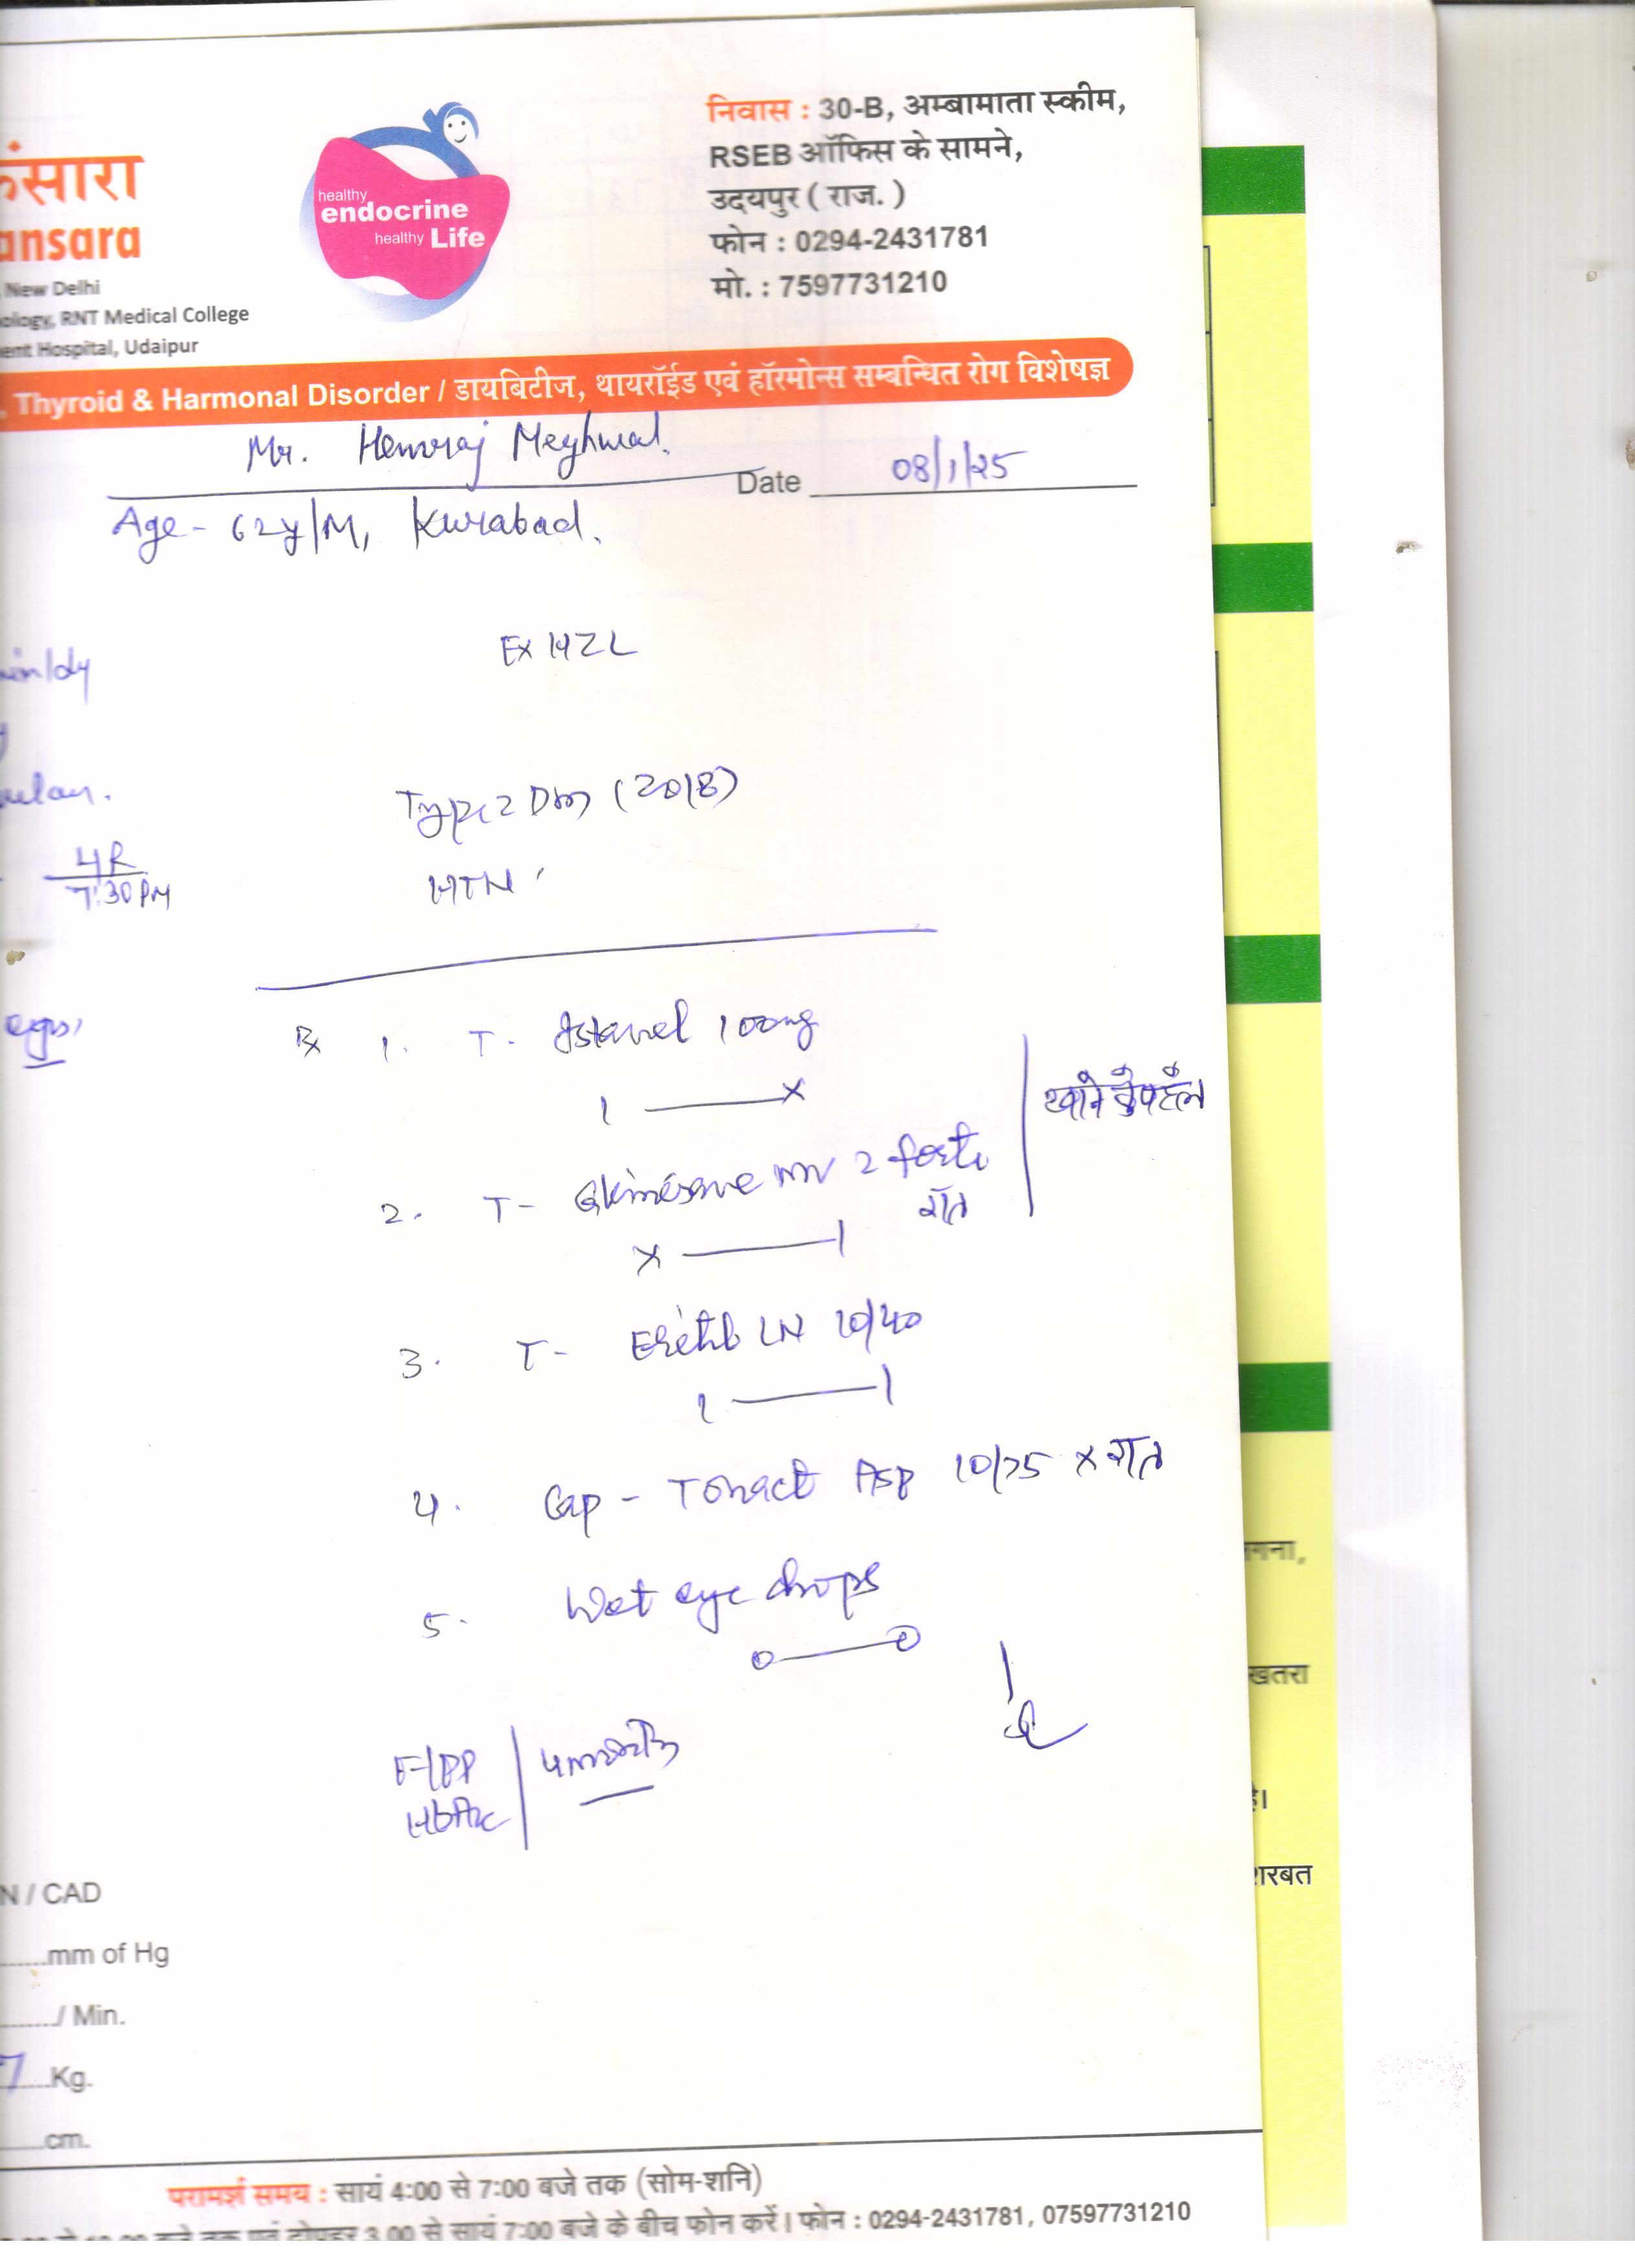 कंसारा
ansara
New Delhi
ology, RNT Medical College
ent Hospital, Udaipur
healthy
endocrine
healthy Life
निवास : 30-B, अम्बामाता स्कीम,
RSEB ऑफिस के सामने,
उदयपुर ( राज. )
फोन : 0294-2431781
मो. : 7597731210
, Thyroid & Harmonal Disorder / डायबिटीज, थायरॉईड एवं हॉरमोन्स सम्बन्धित रोग विशेषज्ञ
Mr. Hemraj Meghwal.
Date 08/1/25
Age - 62y/M, Kurabad.
Ex HZL
Type 2 Dm (2018)
4R
7:30 PM
HTN
Rx 1. T. Istavel 100mg
1 — x
खाने से पहले
2. T - Glimisave MV 2 forte
रात
x — 1
3. T - Eritel LN 10/40
1 — 1
4. Cap - Tonact ASP 10/75 x रात
5. Wet eye drops
0 — 0
F/PP
HbA1c
N / CAD
mm of Hg
/ Min.
7 Kg.
cm.
परामर्श समय : सायं 4:00 से 7:00 बजे तक (सोम-शनि)
बजे तक एवं दोपहर 3.00 से सायं 7:00 बजे के बीच फोन करें। फोन : 0294-2431781, 07597731210
गना,
खतरा
है।
शरबत